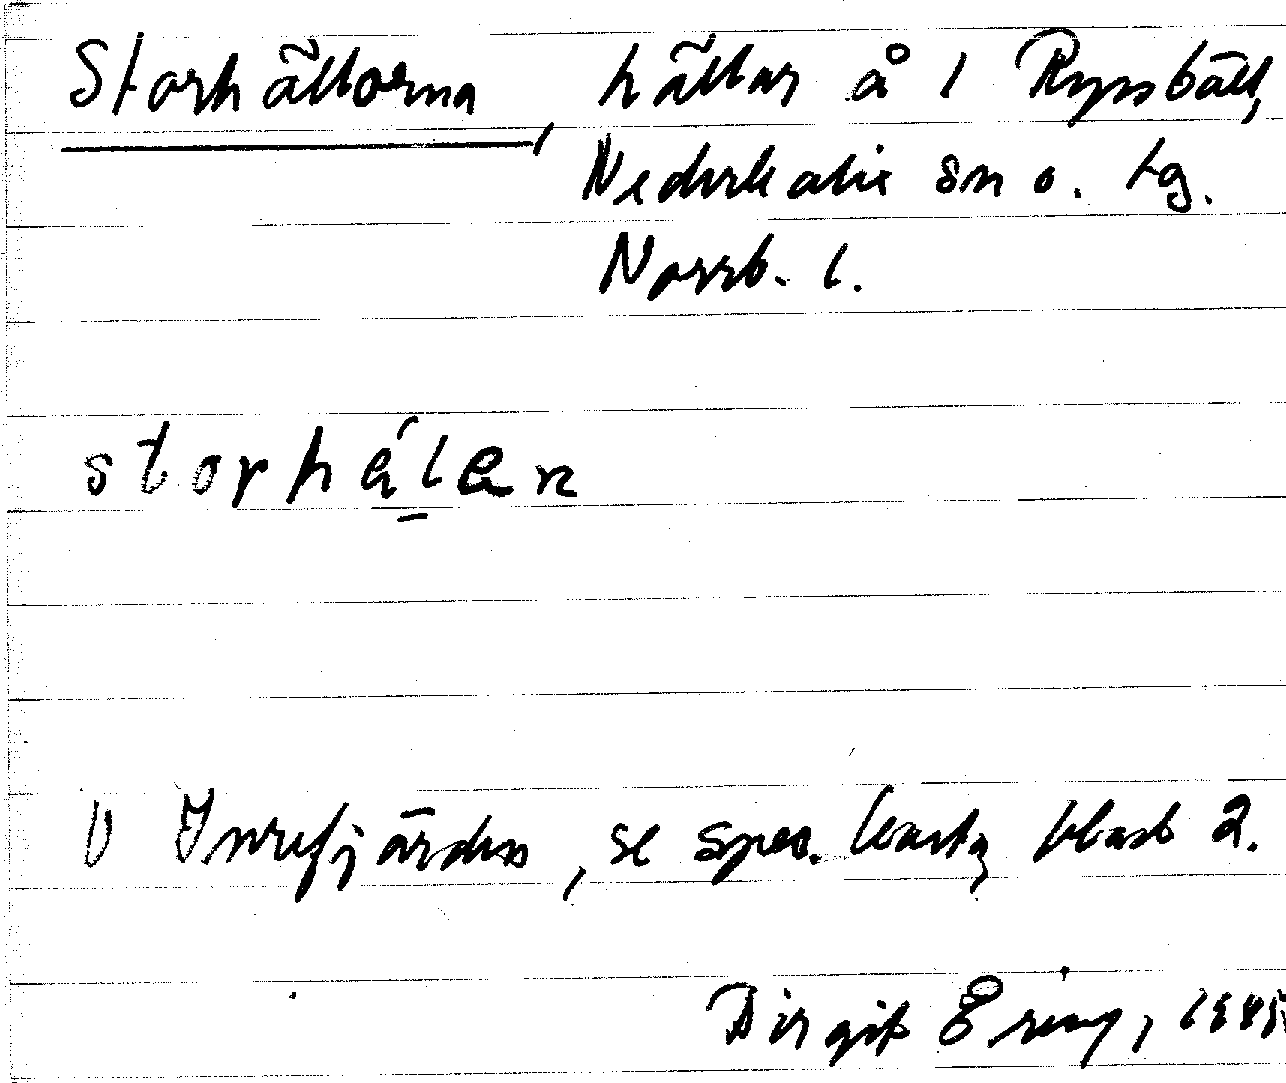 Storhällorna, hällar å 1 Ryssbält,
Nederkalix sn o. tg.
Norrb. l.
storhálen
i Innrefjärden, se spec. karta blad 2.
Birgit Ering, 1985